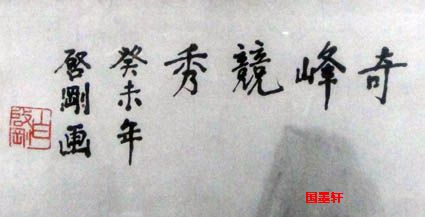 奇峰競秀
癸未年
啓剛画
国墨轩